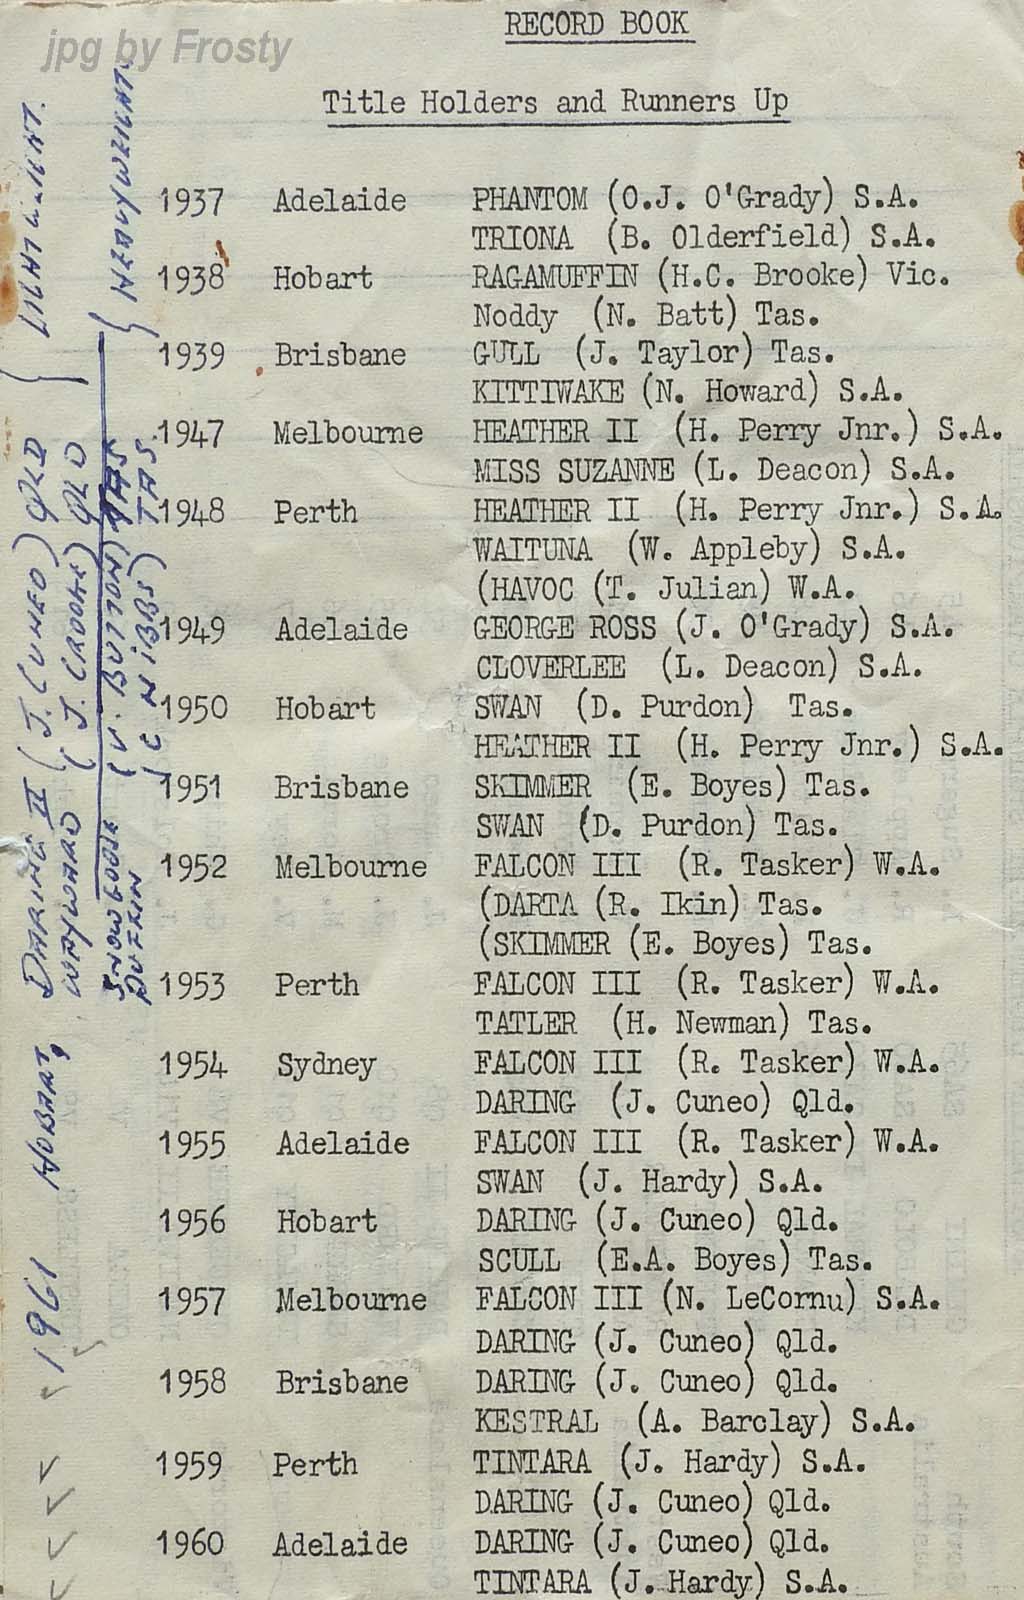 jpg by Frosty
RECORD BOOK
Title Holders and Runners Up
1937 Adelaide PHANTOM (O.J. O'Grady) S.A.
TRIONA (B. Olderfield) S.A.
1938 Hobart RAGAMUFFIN (H.C. Brooke) Vic.
Noddy (N. Batt) Tas.
1939 Brisbane GULL (J. Taylor) Tas.
KITTIWAKE (N. Howard) S.A.
1947 Melbourne HEATHER II (H. Perry Jnr.) S.A.
MISS SUZANNE (L. Deacon) S.A.
1948 Perth HEATHER II (H. Perry Jnr.) S.A.
WAITUNA (W. Appleby) S.A.
(HAVOC (T. Julian) W.A.
1949 Adelaide GEORGE ROSS (J. O'Grady) S.A.
CLOVERLEE (L. Deacon) S.A.
1950 Hobart SWAN (D. Purdon) Tas.
HEATHER II (H. Perry Jnr.) S.A.
1951 Brisbane SKIMMER (E. Boyes) Tas.
SWAN (D. Purdon) Tas.
1952 Melbourne FALCON III (R. Tasker) W.A.
(DARTA (R. Ikin) Tas.
(SKIMMER (E. Boyes) Tas.
1953 Perth FALCON III (R. Tasker) W.A.
TATLER (H. Newman) Tas.
1954 Sydney FALCON III (R. Tasker) W.A.
DARING (J. Cuneo) Qld.
1955 Adelaide FALCON III (R. Tasker) W.A.
SWAN (J. Hardy) S.A.
1956 Hobart DARING (J. Cuneo) Qld.
SCULL (E.A. Boyes) Tas.
1957 Melbourne FALCON III (N. LeCornu) S.A.
DARING (J. Cuneo) Qld.
1958 Brisbane DARING (J. Cuneo) Qld.
KESTRAL (A. Barclay) S.A.
1959 Perth TINTARA (J. Hardy) S.A.
DARING (J. Cuneo) Qld.
1960 Adelaide DARING (J. Cuneo) Qld.
TINTARA (J. Hardy) S.A.
1961 HOBART, DARING II (J. CUNEO) QLD } LIGHTWEIGHT.
WAYWARD (J. CROOKE) QLD
SNOWGOOSE (V. BUTTON) TAS } HEAVYWEIGHT.
(C NIBBS) TAS.